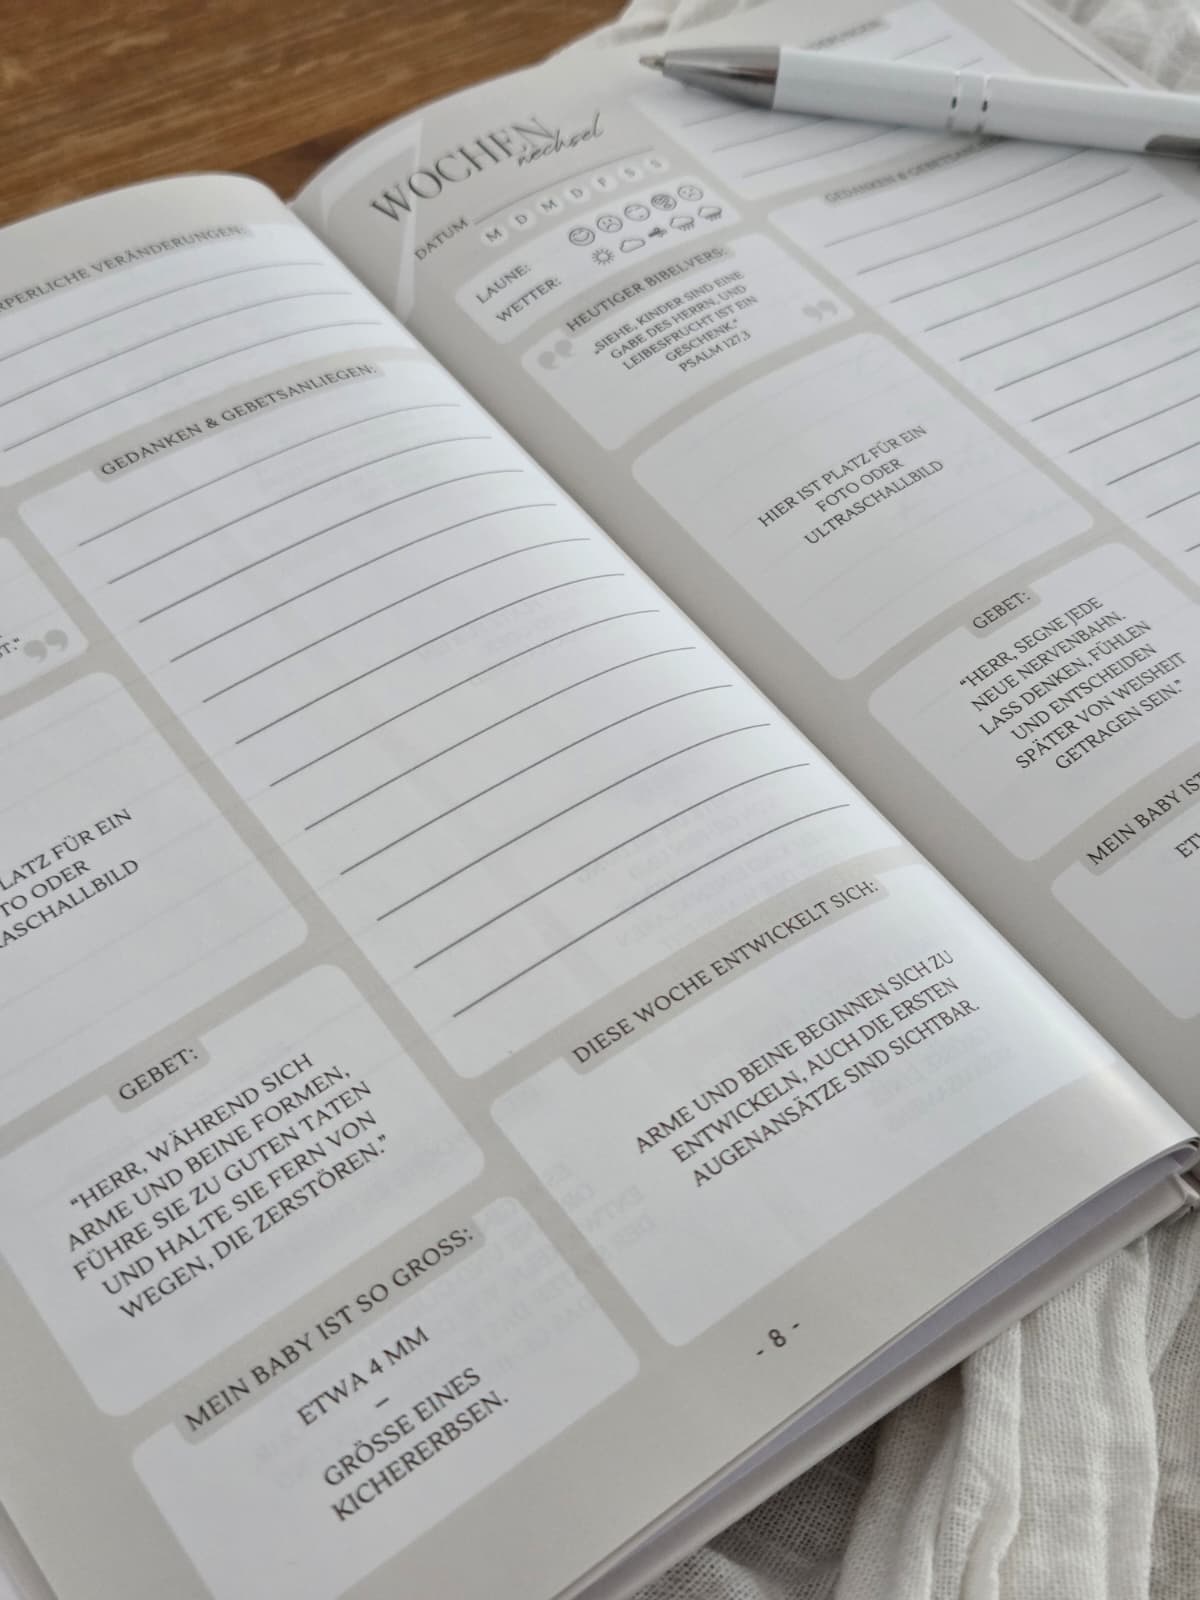 VERÄNDERUNGEN:
GEDANKEN & GEBETSANLIEGEN:
FÜR EIN
ODER
GEBET:
“HERR, WÄHREND SICH
ARME UND BEINE FORMEN,
FÜHRE SIE ZU GUTEN TATEN
UND HALTE SIE FERN VON
WEGEN, DIE ZERSTÖREN.”
MEIN BABY IST SO GROSS:
ETWA 4 MM
–
GRÖSSE EINES
KICHERERBSEN.
DIESE WOCHE ENTWICKELT SICH:
ARME UND BEINE BEGINNEN SICH ZU
ENTWICKELN, AUCH DIE ERSTEN
AUGENANSÄTZE SIND SICHTBAR.
- 8 -
WOCHEN
wechsel
DATUM
M D M D F S S
LAUNE:
WETTER:
HEUTIGER BIBELVERS:
„SIEHE, KINDER SIND EINE
GABE DES HERRN, UND
LEIBESFRUCHT IST EIN
GESCHENK.“
PSALM 127,3
HIER IST PLATZ FÜR EIN
FOTO ODER
ULTRASCHALLBILD
GEBET:
“HERR, SEGNE JEDE
NEUE NERVENBAHN.
LASS DENKEN, FÜHLEN
UND ENTSCHEIDEN
SPÄTER VON WEISHEIT
GETRAGEN SEIN.”
MEIN BABY IST
GEDANKEN &